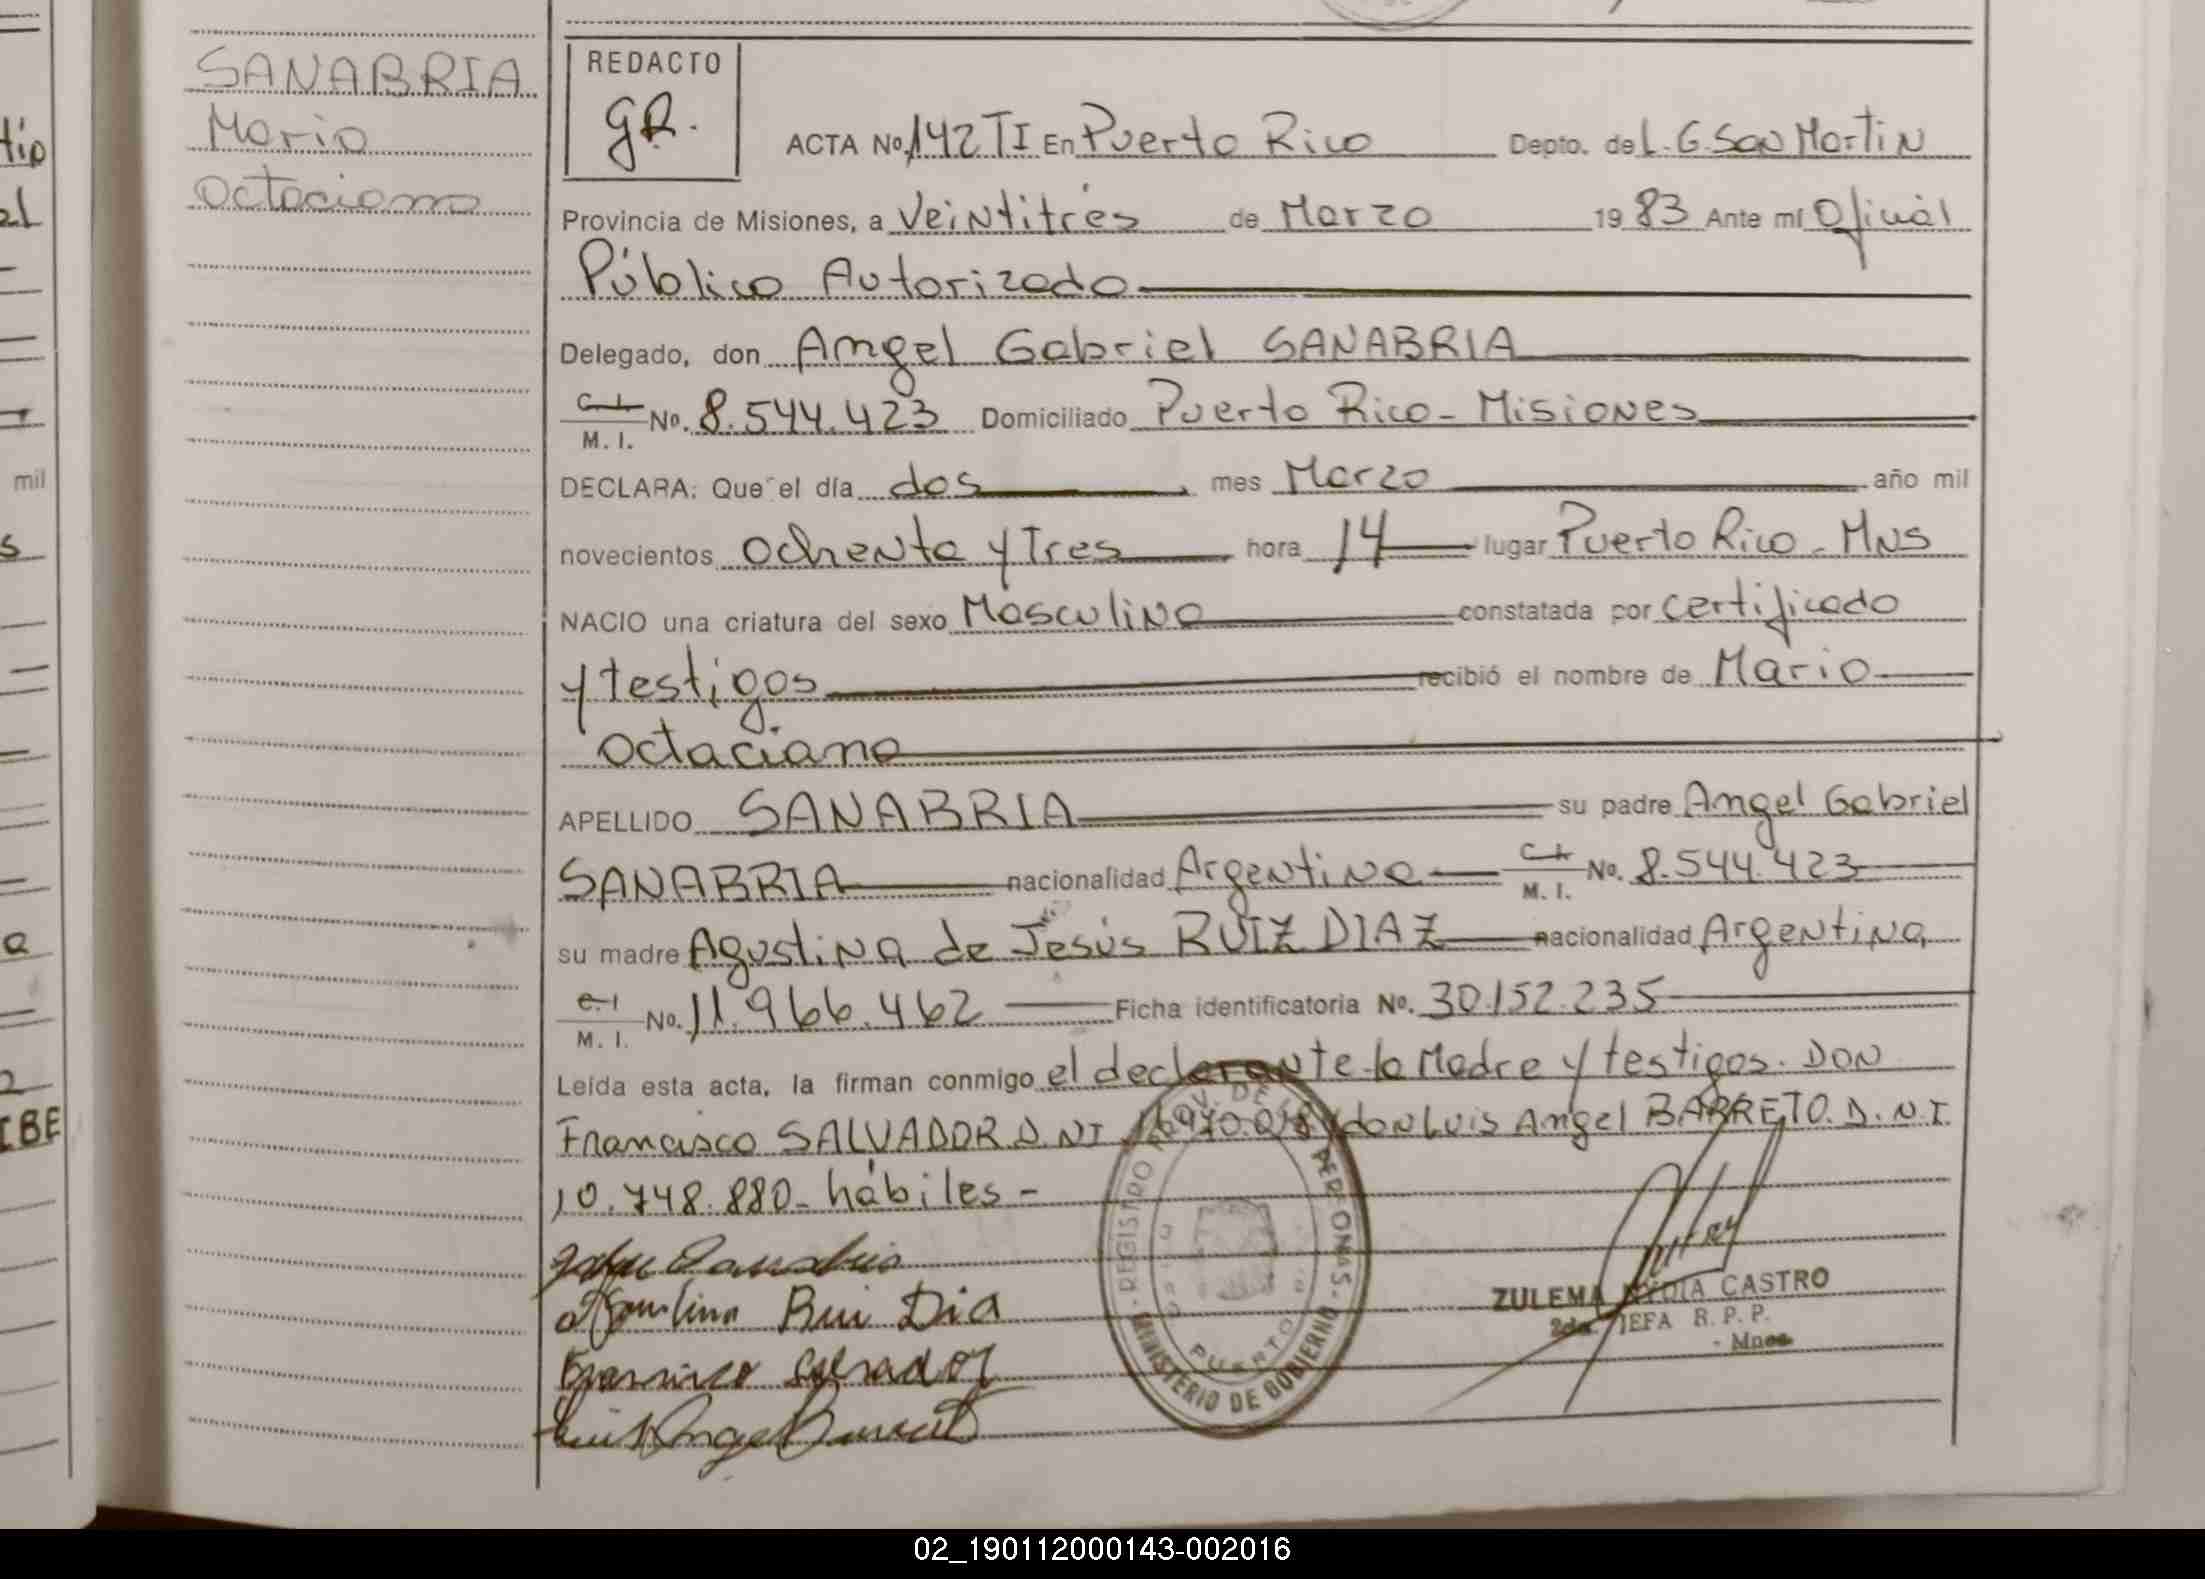 SANABRIA
Mario
Octaciano
REDACTO
GR.
ACTA No. 142 TI En Puerto Rico Depto. de L.G.San Martin
Provincia de Misiones, a Veintitrés de Marzo 1983 Ante mi Oficial
Público Autorizado
Delegado, don Angel Gabriel SANABRIA
C.I. M. I. No. 8.544.423 Domiciliado Puerto Rico - Misiones
DECLARA: Que el día dos mes Marzo año mil
novecientos ochenta y Tres hora 14 lugar Puerto Rico - MNS
NACIO una criatura del sexo Masculino constatada por certificado
y testigos recibió el nombre de Mario
Octaciano
APELLIDO SANABRIA su padre Angel Gabriel
SANABRIA nacionalidad Argentino C.I. M. I. No. 8.544.423
su madre Agustina de Jesús RUIZ DIAZ nacionalidad Argentina
C.I. M. I. No. 11.966.462 Ficha identificatoria No. 30.152.235
Leída esta acta, la firman conmigo el declarante la Madre y testigos. DON
Francisco SALVADOR D.NI y don Luis Angel BARRETO. D.N.I.
10.748.880 - hábiles -
Sanabria
Agustina Rui Dia
Francisco Salvador
Luis Angel Barreto
REGISTRO PROV. DE LAS PERSONAS
MINISTERIO DE GOBIERNO
PUERTO
ZULEMA CASTRO
2da. JEFA R. P. P.
- Mnes
mil
s
a
IBE
02_190112000143-002016